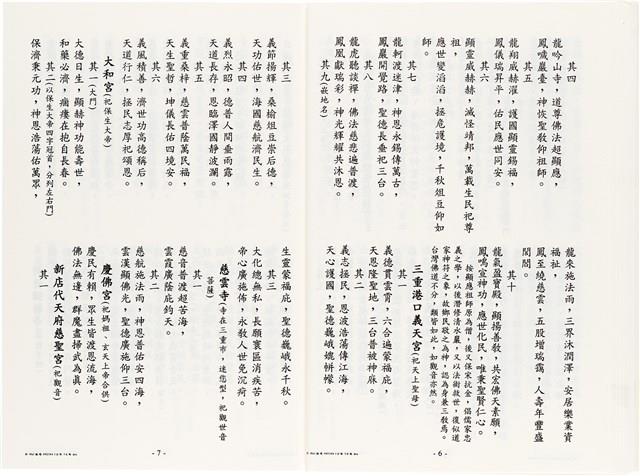 其四
龍吟山寺，道尊佛法超顯應，
鳳噦巖臺，神恢聖教仰祖師。
其五
龍翔威赫濯，護國顯靈錫福，
鳳儀瑞昇平，佑民應世同安。
其六
顯靈威赫赫，滅怪靖邦，萬載生民祀尊
祖，
應世變滔滔，拯危護境，千秋俎豆仰如
師。
其七
龍軻渡迷津，神恩永錫傳萬古，
鳳巖開覺路，聖德長垂祀三台。
其八
龍虎聽談禪，佛法慈悲遍普渡，
鳳凰獻瑞彩，神光輝耀共沐恩。
其九(嵌地名)
龍來施法雨，三界沐潤澤，安居樂業資
福祉，
鳳至繞慈雲，五股增瑞靄，人壽年豐盛
閭閻。
其十
龍氣盈寶殿，顯揚善教，共宏佛天素願，
鳳鳴宣神功，應世化民，唯秉聖賢仁心。
按顯應祖師原為僧，後又保宋抗金，倡儒家忠
義之學，以後潛修清水巖，又以法術救世，復似道
家神符之象，故鄉民敬之為神，認為身兼三教焉。
台灣佛道不分，類皆如此，如觀音亦然。
三重港口義天宮(祀天上聖母)
其一
義德貫雲霄，六合遍蒙福庇，
天恩隆聖地，三台普被神庥。
其二
義志拯民，恩波浩蕩傳江海，
天心護國，聖德巍峨媲帡幪。
- 6 -
其三
義節揚輝，桑榆俎豆崇后德，
天功佑世，海國慈航濟民生。
其四
義烈永昭，德普人間垂雨露，
天道長存，恩臨澤國靜波瀾。
其五
義重桑梓，慈雲普蔭萬民福，
天生聖哲，坤儀長佑四境安。
其六
義風積善，濟世功高德稱后，
天道行仁，拯民志厚祀頌恩。
大和宮(祀保生大帝)
其一(大門)
大德日生，顯赫神功能壽世，
和藥必濟，痌瘝在抱自長春。
其二(以保生大帝四字冠首，分列左右門)
保濟秉元功，神恩浩蕩佑萬眾，
生靈蒙福庇，聖德巍峨永千秋。
其三
大化總無私，長願寰區消疾苦，
帝心廣施佈，永教人世免沉疴。
慈雲寺(寺在三重市，迷您型，祀觀世音
菩薩)
其一
慈音普渡超苦海，
雲霞廣蔭庇鈞天。
其二
慈航施法雨，神恩普佑安四海，
雲漢顯佛光，聖德廣施仰三台。
慶佛宮(祀媽祖、玄天上帝合供)
慶民有賴，眾生皆渡恩流海，
佛法無邊，群魔盡掃武為真。
新店代天府慈聖宮(祀觀音)
其一
- 7 -